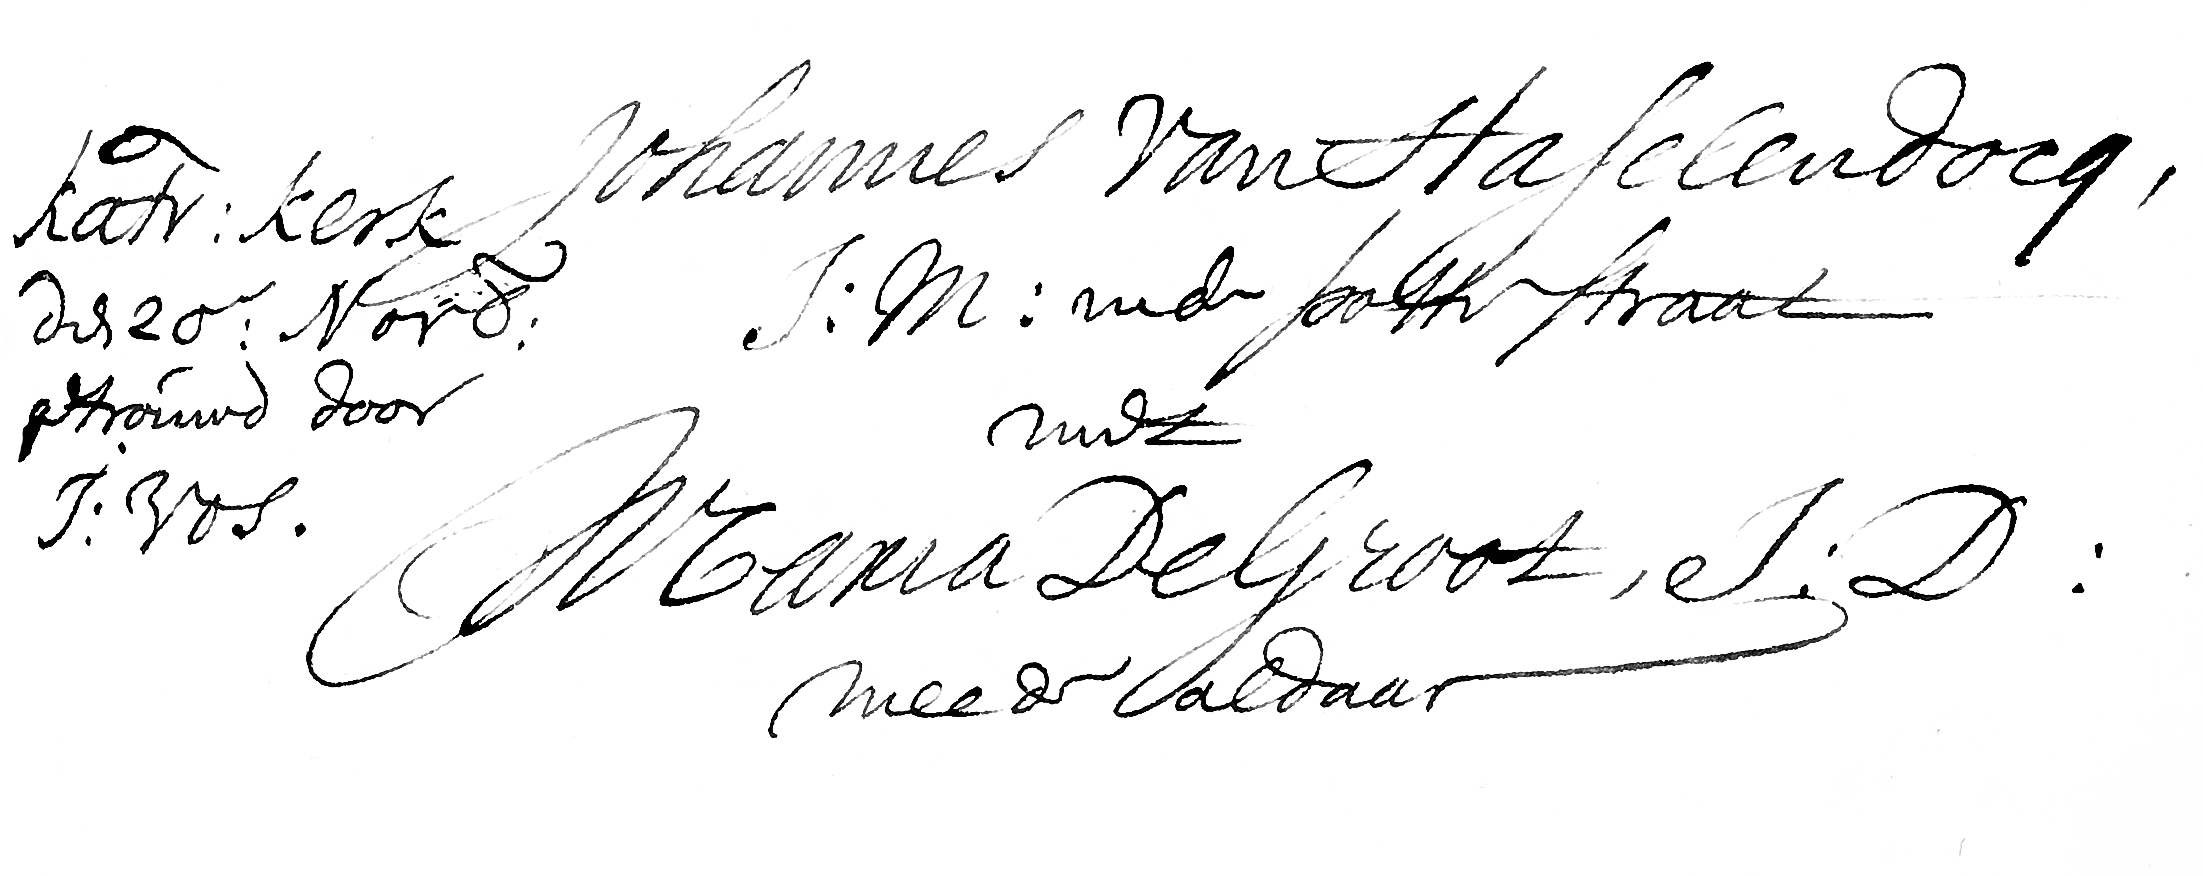 Kath: Kerk
den 20en: Novb:
getrouwd door
J: Vos.
Johannes Van Haselendocq,
J: M: in de Potterstraat
met
Maria De Groot, J: D:
mede aldaar